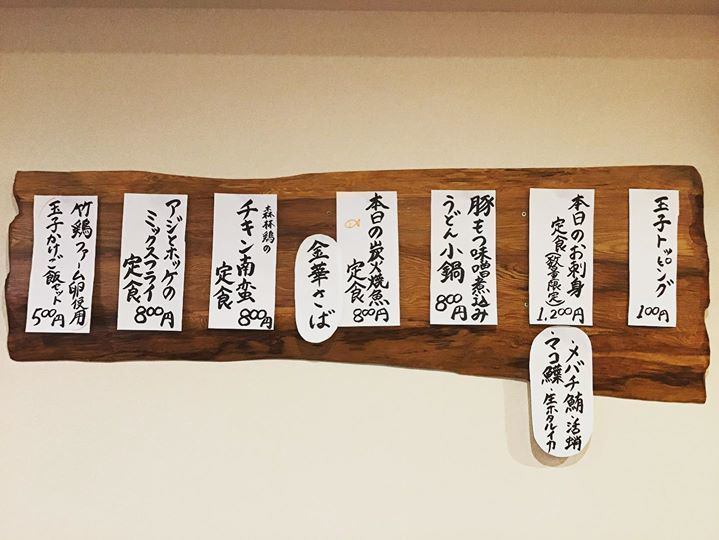 玉子トッピング
100円
本日のお刺身
定食(数量限定)
1,200円
・メバチ鮪・活蛸
・マコ鰈・生ホタルイカ
豚もつ味噌煮込み
うどん小鍋
800円
本日の炭火焼魚
定食
800円
金華さば
森林鶏の
チキン南蛮
定食
800円
アジとホッケの
ミックスフライ
定食
800円
竹鶏ファーム卵使用
玉子かけご飯セット
500円